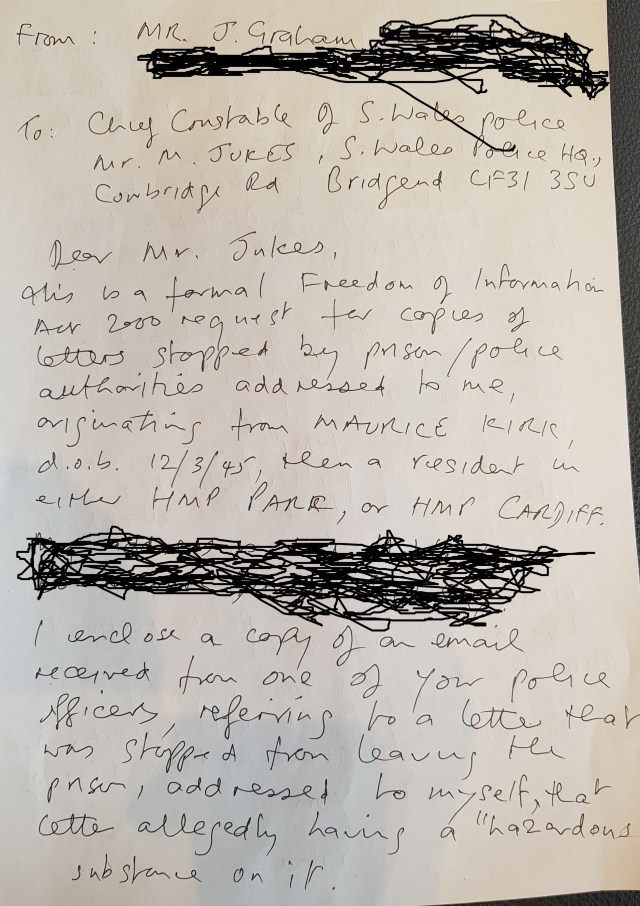 From: MR. J. Graham
To: Chief Constable of S. Wales police
Mr. M. JUKES, S. Wales Police HQ.,
Cowbridge Rd Bridgend CF31 3SU
Dear Mr. Jukes,
this is a formal Freedom of Information
Act 2000 request for copies of
letters stopped by prison/police
authorities addressed to me,
originating from MAURICE KIRK,
d.o.b. 12/3/45, then a resident in
either HMP PARK, or HMP CARDIFF.
I enclose a copy of an email
received from one of your police
officers, referring to a letter that
was stopped from leaving the
prison, addressed to myself, that
letter allegedly having a "hazardous
substance on it.